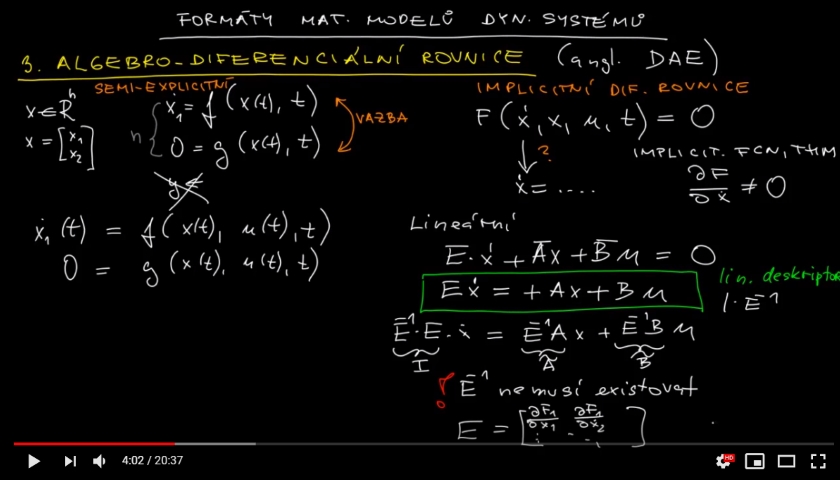 FORMÁTY MAT. MODELŮ DYN. SYSTÉMŮ
3. ALGEBRO-DIFERENCIÁLNÍ ROVNICE (angl. DAE)
SEMI-EXPLICITNÍ
x ∈ Rⁿ
x = [x₁ x₂]
n { ẋ₁ = f(x(t), t)
0 = g(x(t), t)
VAZBA
y =
ẋ₁(t) = f(x(t), u(t), t)
0 = g(x(t), u(t), t)
IMPLICITNÍ DIF. ROVNICE
F(ẋ, x, u, t) = 0
?
ẋ = ....
IMPLICIT. FCN. THM
∂F/∂ẋ ≠ 0
Lineární
E·ẋ + A̅x + B̅u = 0
Eẋ = +Ax + Bu
lin. deskriptor
/· E⁻¹
E⁻¹·E·ẋ = E⁻¹A x + E⁻¹B u
I Ã B̃
! E⁻¹ nemusí existovat
E = [∂F₁/∂ẋ₁ ∂F₁/∂ẋ₂
4:02 / 20:37
HD